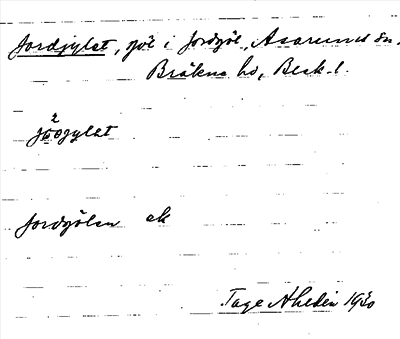 Jordgylet, göl i Jordgöl, Asarums sn.
Bräkne hd, Blek. l.
2
joogylet
Jordgölen ek
Tage Ahldén 1930